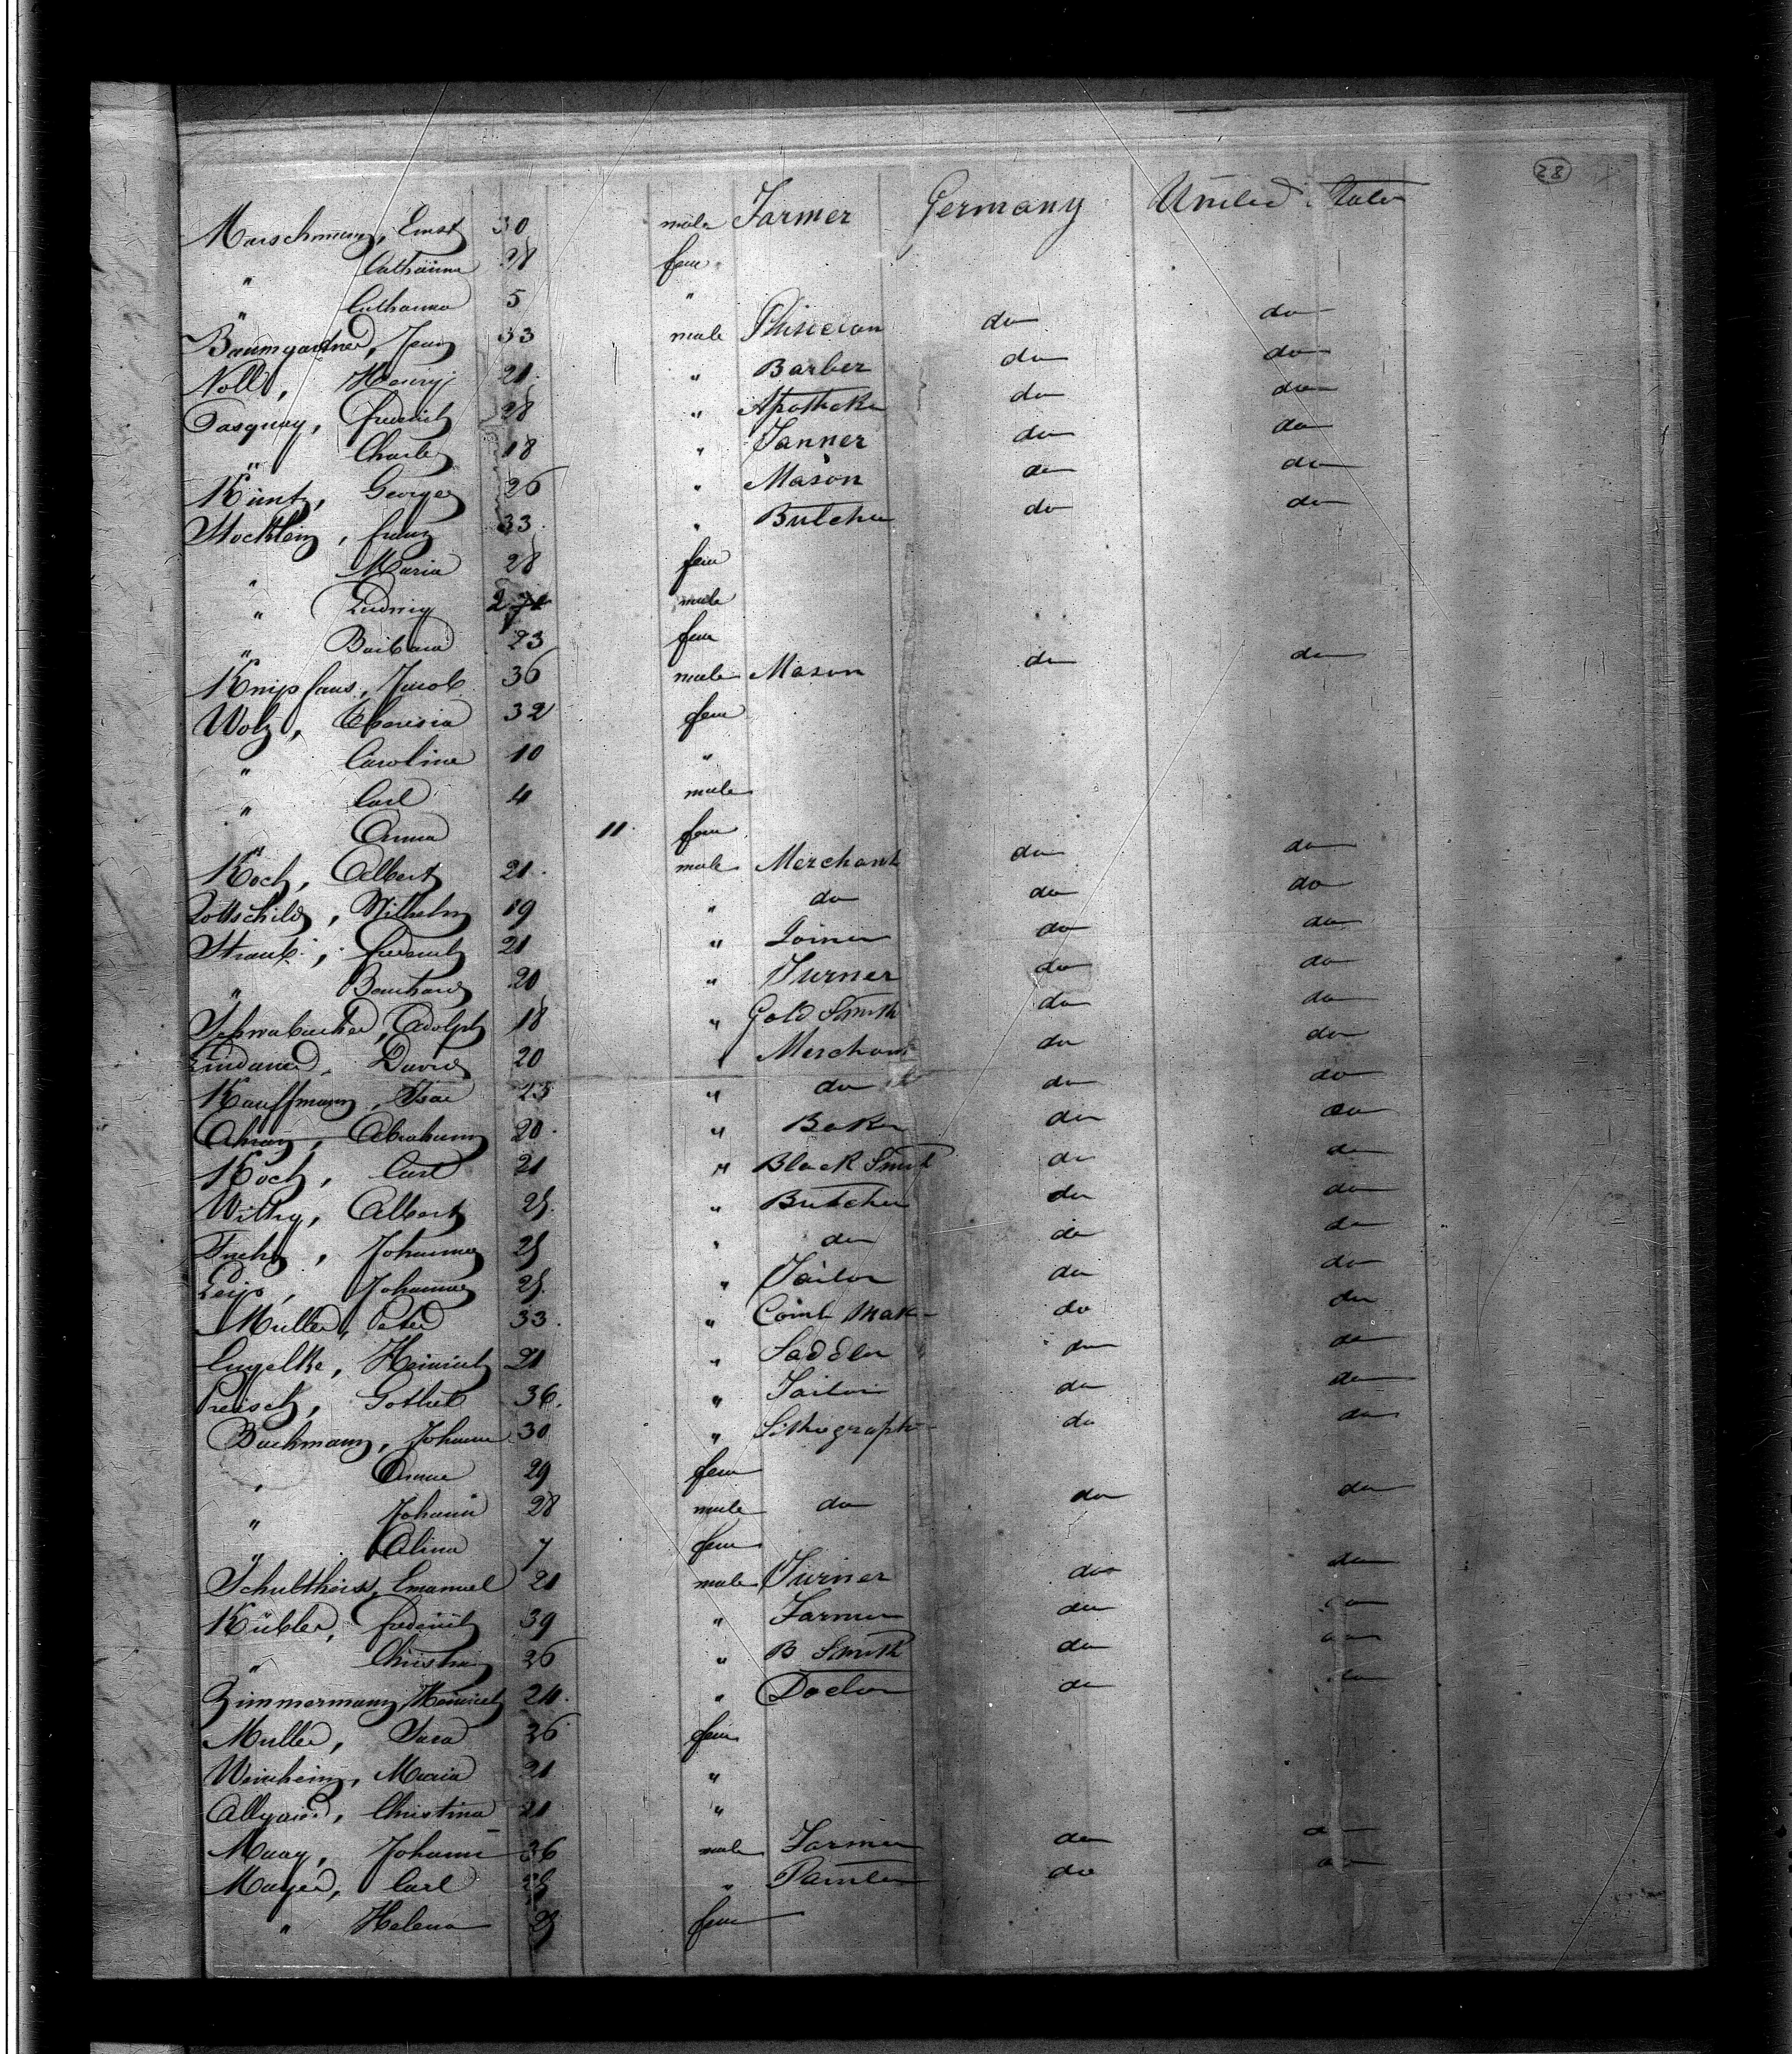 28
Marschmann, Ernst 30 male Farmer Germany United States
" Catharina 28 fem
" Catharina 5 "
Baumgardner, Jean 33 male Phisician do do
Noll, Henry 21 " Barber do do
Pasquay, Friedrich 28 " Apotheker do do
" Charles 18 " Tanner do do
Küntz, George 26 " Mason do do
Stocklein, Franz 33 " Butcher do do
" Maria 28 fem
" Ludwig male
" Barbara 23 fem
Kniphaus, Jacob 36 male Mason do do
Wolz, Theresia 32 fem
" Caroline 10 "
" Carl 4 male
" Anna 11 fem
Koch, Albert 21 male Merchant do do
Rottschild, Wilhelm 19 " do do do
Straub, Frederich 21 " Joiner do do
" Bernhard 20 " Turner do do
Schwabacher, Adolph 18 " Gold Smith do do
Lindauer, David 20 " Merchant do do
Kauffmann, Isac 23 " do do do
Abraham 20 " Baker do do
Koch, Carl 21 " Black Smith do do
Albert 25 " Butcher do do
Fuchs, Johannes 25 " do do do
Johannes 25 " Tailor do do
Muller, Peter 33 " Comb Mak do do
Engelke, Heinrich 21 " Saddler do do
Preisch, Gothel 36 " Tailor do do
Bachmann, Johann 30 " Lithograph do do
" Anna 29 fem
" Johann 28 male do do do
" Alina 7 fem
Schultheiss, Emanuel 21 male Turner do do
Kübler, Frederich 39 " Farmer do do
" Christian 26 " B Smith do do
Zimmermann, Heinrich 24 " Doctor do do
Muller, Sara 26 fem
Weinheim, Maria 21 "
Allgaier, Christina 21 "
Maay, Johann 36 male Farmer do do
Mayer, Carl 25 " Painter do do
" Helena 25 fem